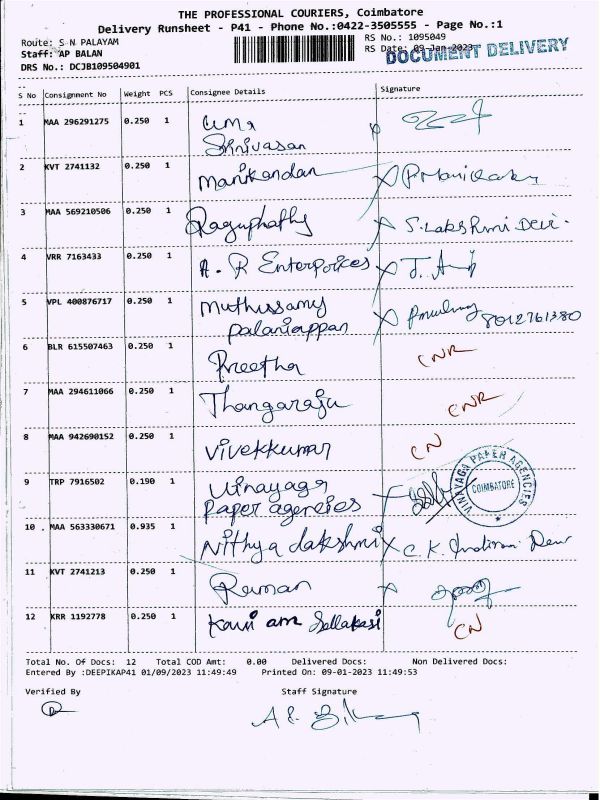 THE PROFESSIONAL COURIERS, Coimbatore
Delivery Runsheet - P41 - Phone No.:0422-3505555 - Page No.:1
Route: S N PALAYAM
RS No.: 1095049
Staff: AP BALAN
RS Date: 09-Jan-2023
DOCUMENT DELIVERY
DRS No.: DCJB109504901
S No Consignment No Weight PCS Consignee Details Signature
1 MAA 296291275 0.250 1 Uma
Srinivasan
2 KVT 2741132 0.250 1 Manikandan P. Manikandan
3 MAA 569210506 0.250 1 Raguphathy S. Lakshmi Devi.
4 VRR 7163433 0.250 1 A. R Enterprices
5 VPL 400876717 0.250 1 Muthussamy
Palaniappan 8012761380
6 BLR 615507463 0.250 1 Preetha CNR
7 MAA 294611066 0.250 1 Thangaraju CNR
8 MAA 942690152 0.250 1 Vivekkumar CN
9 TRP 7916502 0.190 1 Vinayaga
Paper agencies
VINAYAGA PAPER AGENCIES
COIMBATORE
10 . MAA 563330671 0.935 1 Nithya Lakshmi C. K.
11 KVT 2741213 0.250 1 Raman
12 KRR 1192778 0.250 1 CN
Total No. Of Docs: 12 Total COD Amt: 0.00 Delivered Docs: Non Delivered Docs:
Entered By :DEEPIKAP41 01/09/2023 11:49:49 Printed On: 09-01-2023 11:49:53
Verified By Staff Signature